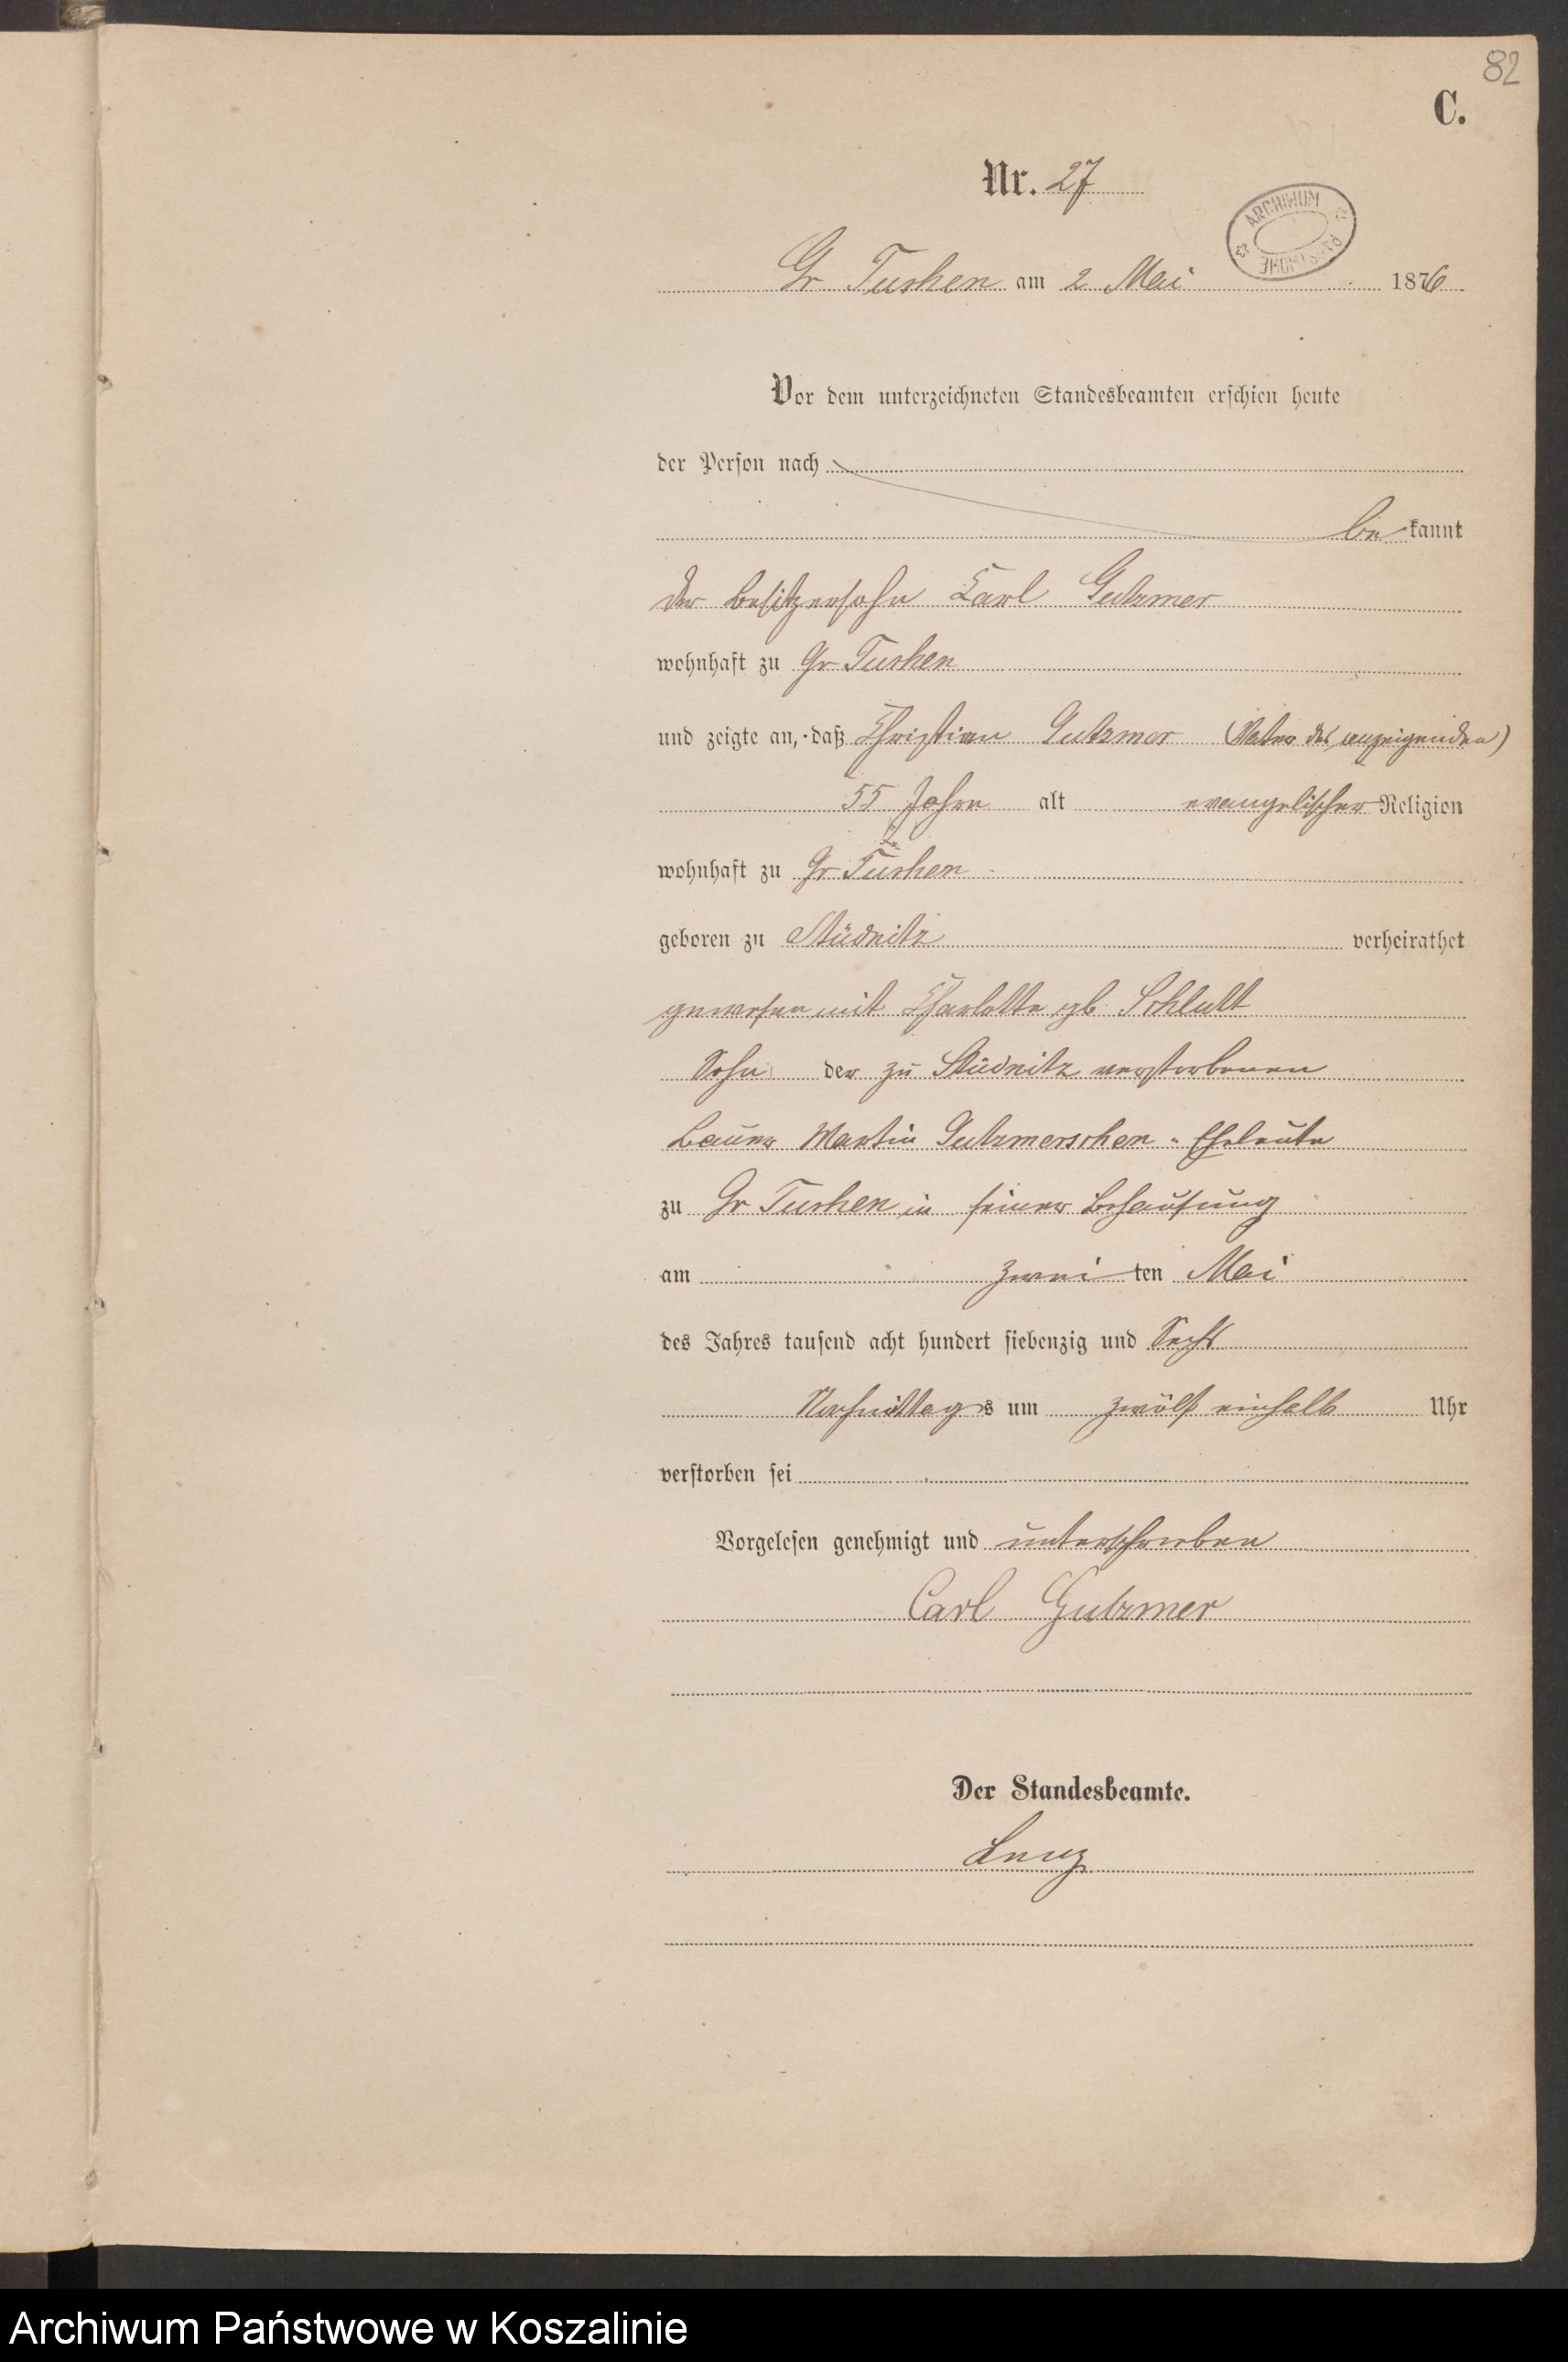 82
C.
Nr. 27
ARCHIWUM PAŃSTWOWE
Gr Tuchen am 2 Mai 1876
Vor dem unterzeichneten Standesbeamten erschien heute
der Person nach
be kannt
der Besitzersohn Carl Gutzmer
wohnhaft zu Gr Tuchen
und zeigte an, daß Christian Gutzmer (Vater des anzeigenden)
55 Jahre alt evangelischer Religion
wohnhaft zu Gr Tuchen
geboren zu Stüdnitz verheirathet
gewesen mit Charlotte gb. Schlutt
Sohn der zu Stüdnitz verstorbenen
Bauer Martin Gutzmerschen Eheleute
zu Gr Tuchen in seiner Behausung
am zwei ten Mai
des Jahres tausend acht hundert siebenzig und Sechs
Nachmittags um zwölf einhalb Uhr
verstorben sei
Vorgelesen genehmigt und unterschrieben
Carl Gutzmer
Der Standesbeamte.
Lenz
Archiwum Państwowe w Koszalinie